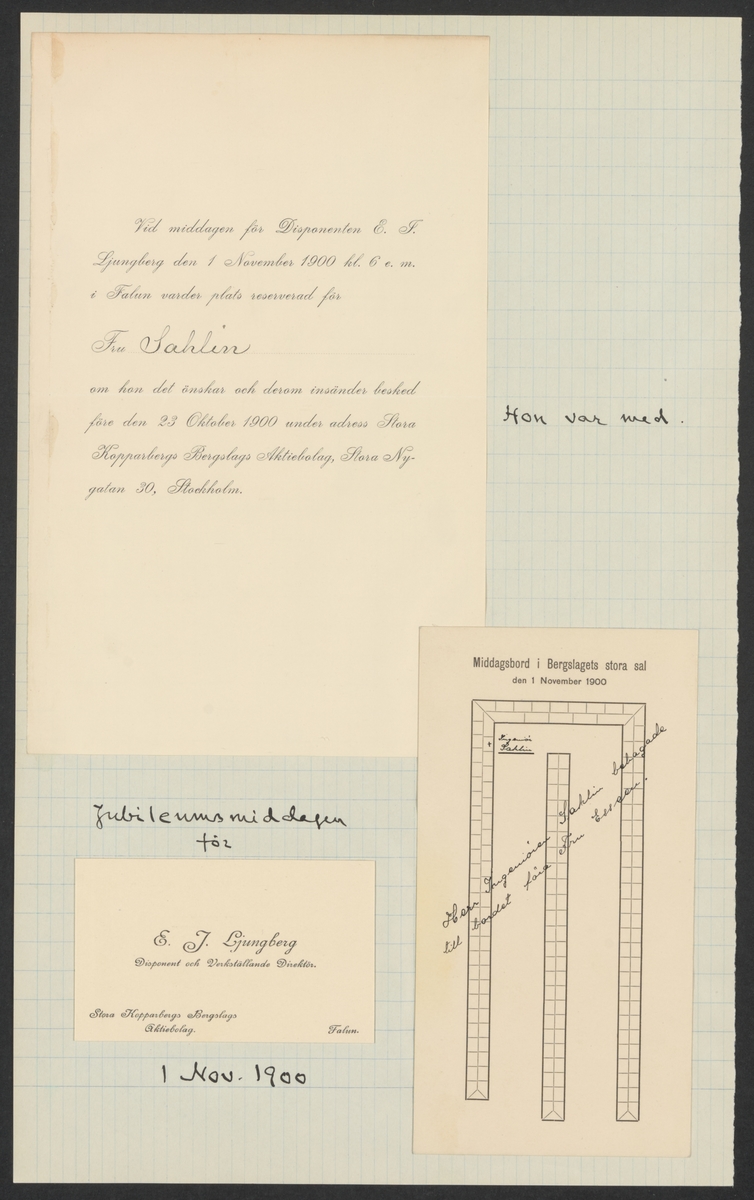 Vid middagen för Disponenten E. J.
Ljungberg den 1 November 1900 kl. 6 e. m.
i Falun varder plats reserverad för
Fru Sahlin
om hon det önskar och derom insänder besked
före den 23 Oktober 1900 under adress Stora
Kopparbergs Bergslags Aktiebolag, Stora Ny-
gatan 30, Stockholm.
Hon var med.
Middagsbord i Bergslagets stora sal
den 1 November 1900
Ingeniör
Sahlin
Herr Ingeniören Sahlin behagade
till bordet föra Fru Essén.
Jubileumsmiddagen
för
E. J. Ljungberg
Disponent och Verkställande Direktör.
Stora Kopparbergs Bergslags
Aktiebolag.
Falun.
1 Nov. 1900